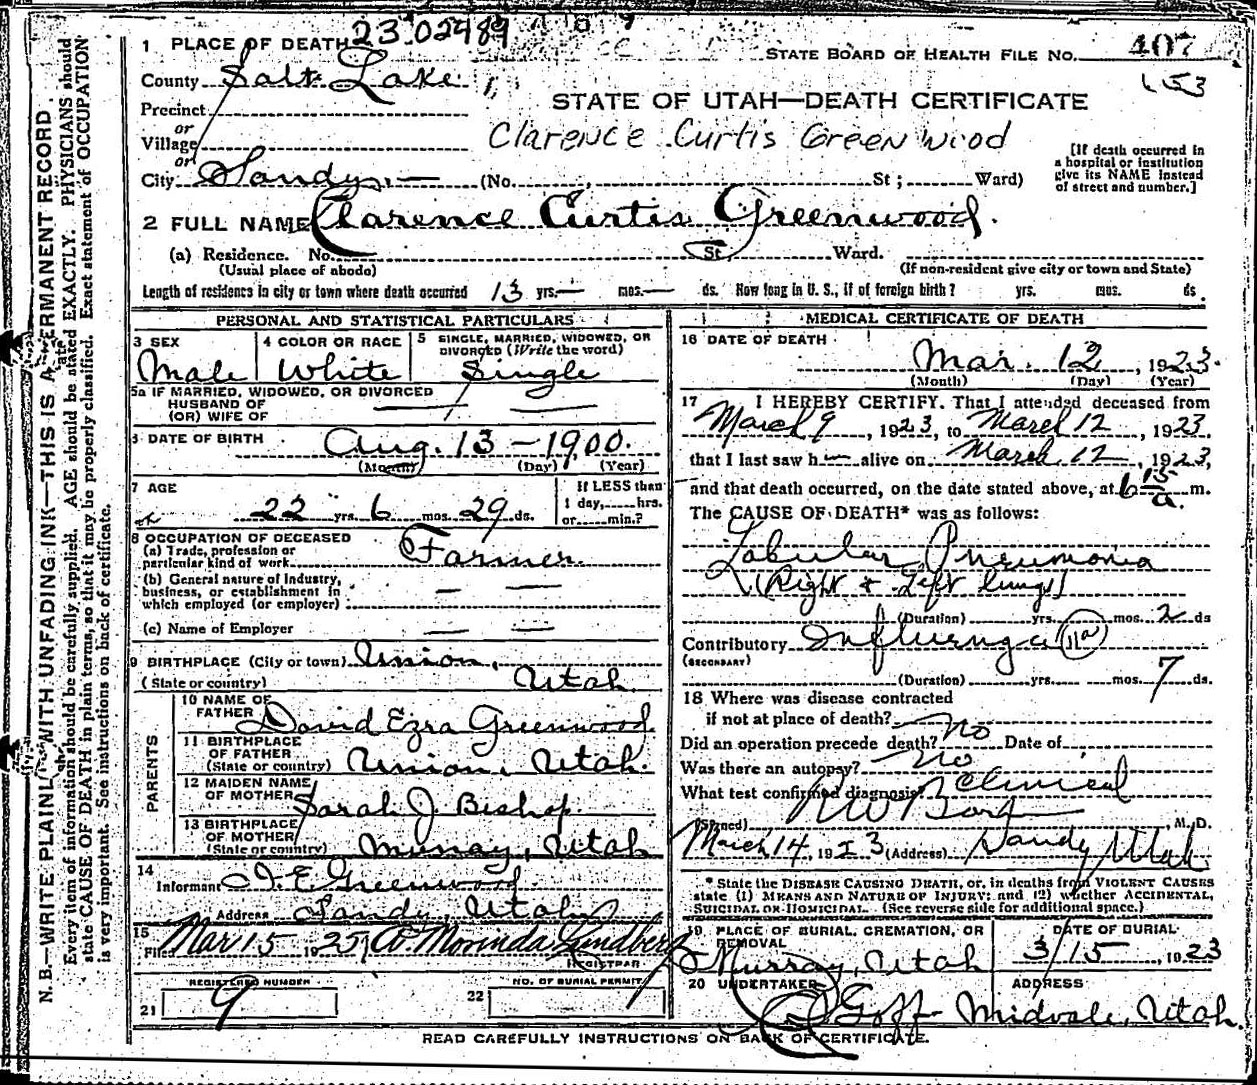 N. B.—WRITE PLAINLY WITH UNFADING INK—THIS IS A PERMANENT RECORD.
Every item of information should be carefully supplied. AGE should be stated EXACTLY. PHYSICIANS should
state CAUSE OF DEATH in plain terms, so that it may be properly classified. Exact statement of OCCUPATION
is very important. See instructions on back of certificate.
23 02489
STATE BOARD OF HEALTH FILE NO. 407
153
1 PLACE OF DEATH
County Salt Lake
Precinct
or
Village
or
City Sandy (No. St; Ward)
STATE OF UTAH—DEATH CERTIFICATE
Clarence Curtis Greenwood
[If death occurred in
a hospital or institution
give its NAME instead
of street and number.]
2 FULL NAME Clarence Curtis Greenwood.
(a) Residence. No. St. Ward.
(Usual place of abode) (If non-resident give city or town and State)
Length of residence in city or town where death occurred 13 yrs.— mos.— ds. How long in U. S., if of foreign birth? yrs. mos. ds.
PERSONAL AND STATISTICAL PARTICULARS
3 SEX Male
4 COLOR OR RACE White
5 SINGLE, MARRIED, WIDOWED, OR
DIVORCED (Write the word)
Single
5a IF MARRIED, WIDOWED, OR DIVORCED
HUSBAND OF
(OR) WIFE OF
6 DATE OF BIRTH Aug. 13 – 1900.
(Month) (Day) (Year)
7 AGE
22 yrs. 6 mos. 29 ds.
If LESS than
1 day, hrs.
or min.?
8 OCCUPATION OF DECEASED
(a) Trade, profession or
particular kind of work Farmer.
(b) General nature of Industry,
business, or establishment in
which employed (or employer)
(c) Name of Employer
9 BIRTHPLACE (City or town) Union,
(State or country) Utah.
PARENTS
10 NAME OF
FATHER David Ezra Greenwood.
11 BIRTHPLACE
OF FATHER
(State or country) Union, Utah.
12 MAIDEN NAME
OF MOTHER Sarah J. Bishop.
13 BIRTHPLACE
OF MOTHER
(State or country) Murray, Utah
14
Informant Greenwood.
Address Sandy, Utah
15
Filed Mar 15 Morinda Lundberg
REGISTRAR
REGISTERED NUMBER
21 9
NO. OF BURIAL PERMIT
22
MEDICAL CERTIFICATE OF DEATH
16 DATE OF DEATH
Mar. 12, 1923.
(Month) (Day) (Year)
17 I HEREBY CERTIFY. That I attended deceased from
March 9, 1923, to March 12, 1923,
that I last saw h— alive on March 12, 1923,
and that death occurred, on the date stated above, at 6 15 a. m.
The CAUSE OF DEATH* was as follows:
Lobular Pneumonia
(Right & Left lungs)
(Duration) yrs. mos. 2 ds
Contributory Influenza 11a
(SECONDARY)
(Duration) yrs. mos. 7 ds.
18 Where was disease contracted
if not at place of death?
Did an operation precede death? No Date of
Was there an autopsy? No
What test confirmed diagnosis? Clinical
(Signed) M. D.
March 14, 1923 (Address) Sandy Utah.
* State the DISEASE CAUSING DEATH, or, in deaths from VIOLENT CAUSES
state (1) MEANS AND NATURE OF INJURY; and (2) whether ACCIDENTAL,
SUICIDAL OR HOMICIDAL. (See reverse side for additional space.)
19 PLACE OF BURIAL, CREMATION, OR
REMOVAL
Murray, Utah
DATE OF BURIAL
3/15, 1923
20 UNDERTAKER
Goff
ADDRESS
Midvale, Utah.
READ CAREFULLY INSTRUCTIONS ON BACK OF CERTIFICATE.